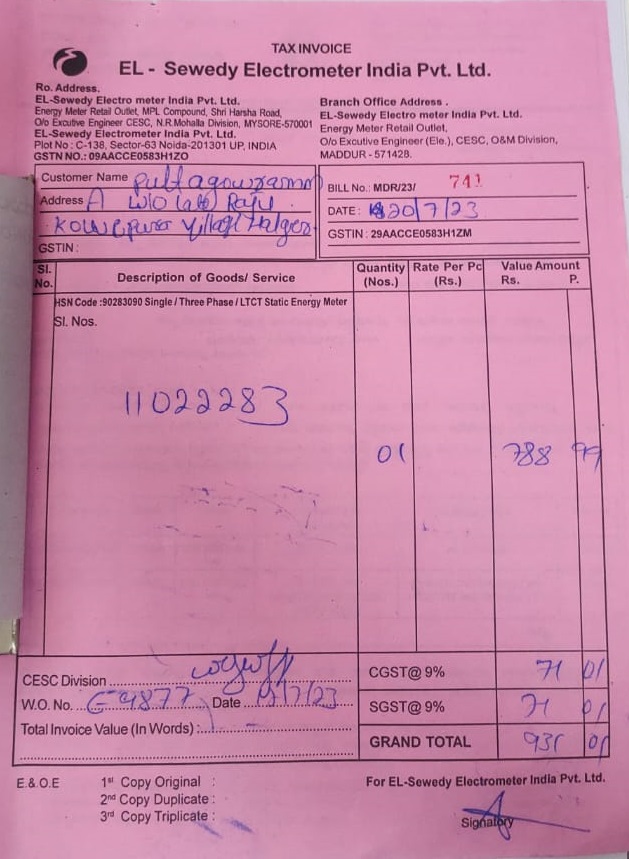 TAX INVOICE
EL - Sewedy Electrometer India Pvt. Ltd.
Ro. Address.
EL-Sewedy Electro meter India Pvt. Ltd.
Energy Meter Retail Outlet, MPL Compound, Shri Harsha Road,
O/o Excutive Engineer CESC, N.R.Mohalla Division, MYSORE-570001
EL-Sewedy Electrometer India Pvt. Ltd.
Plot No : C-138, Sector-63 Noida-201301 UP, INDIA
GSTN NO.: 09AACCE0583H1ZO
Branch Office Address .
EL-Sewedy Electro meter India Pvt. Ltd.
Energy Meter Retail Outlet,
O/o Excutive Engineer (Ele.), CESC, O&M Division,
MADDUR - 571428.
Customer Name Puttagowramma
Address A w/o late Raju
Village
GSTIN :
BILL No.: MDR/23/ 741
DATE : 20/7/23
GSTIN : 29AACCE0583H1ZM
Sl. No. Description of Goods/ Service Quantity (Nos.) Rate Per Pc (Rs.) Value Amount Rs. P.
HSN Code :90283090 Single / Three Phase / LTCT Static Energy Meter
Sl. Nos.
11022283
01 788 99
CESC Division
W.O. No. Date /7/23
Total Invoice Value (In Words) :
CGST@ 9% 71 01
SGST@ 9% 71 01
GRAND TOTAL 931 01
E.& O.E
1st Copy Original :
2nd Copy Duplicate :
3rd Copy Triplicate :
For EL-Sewedy Electrometer India Pvt. Ltd.
Signatory